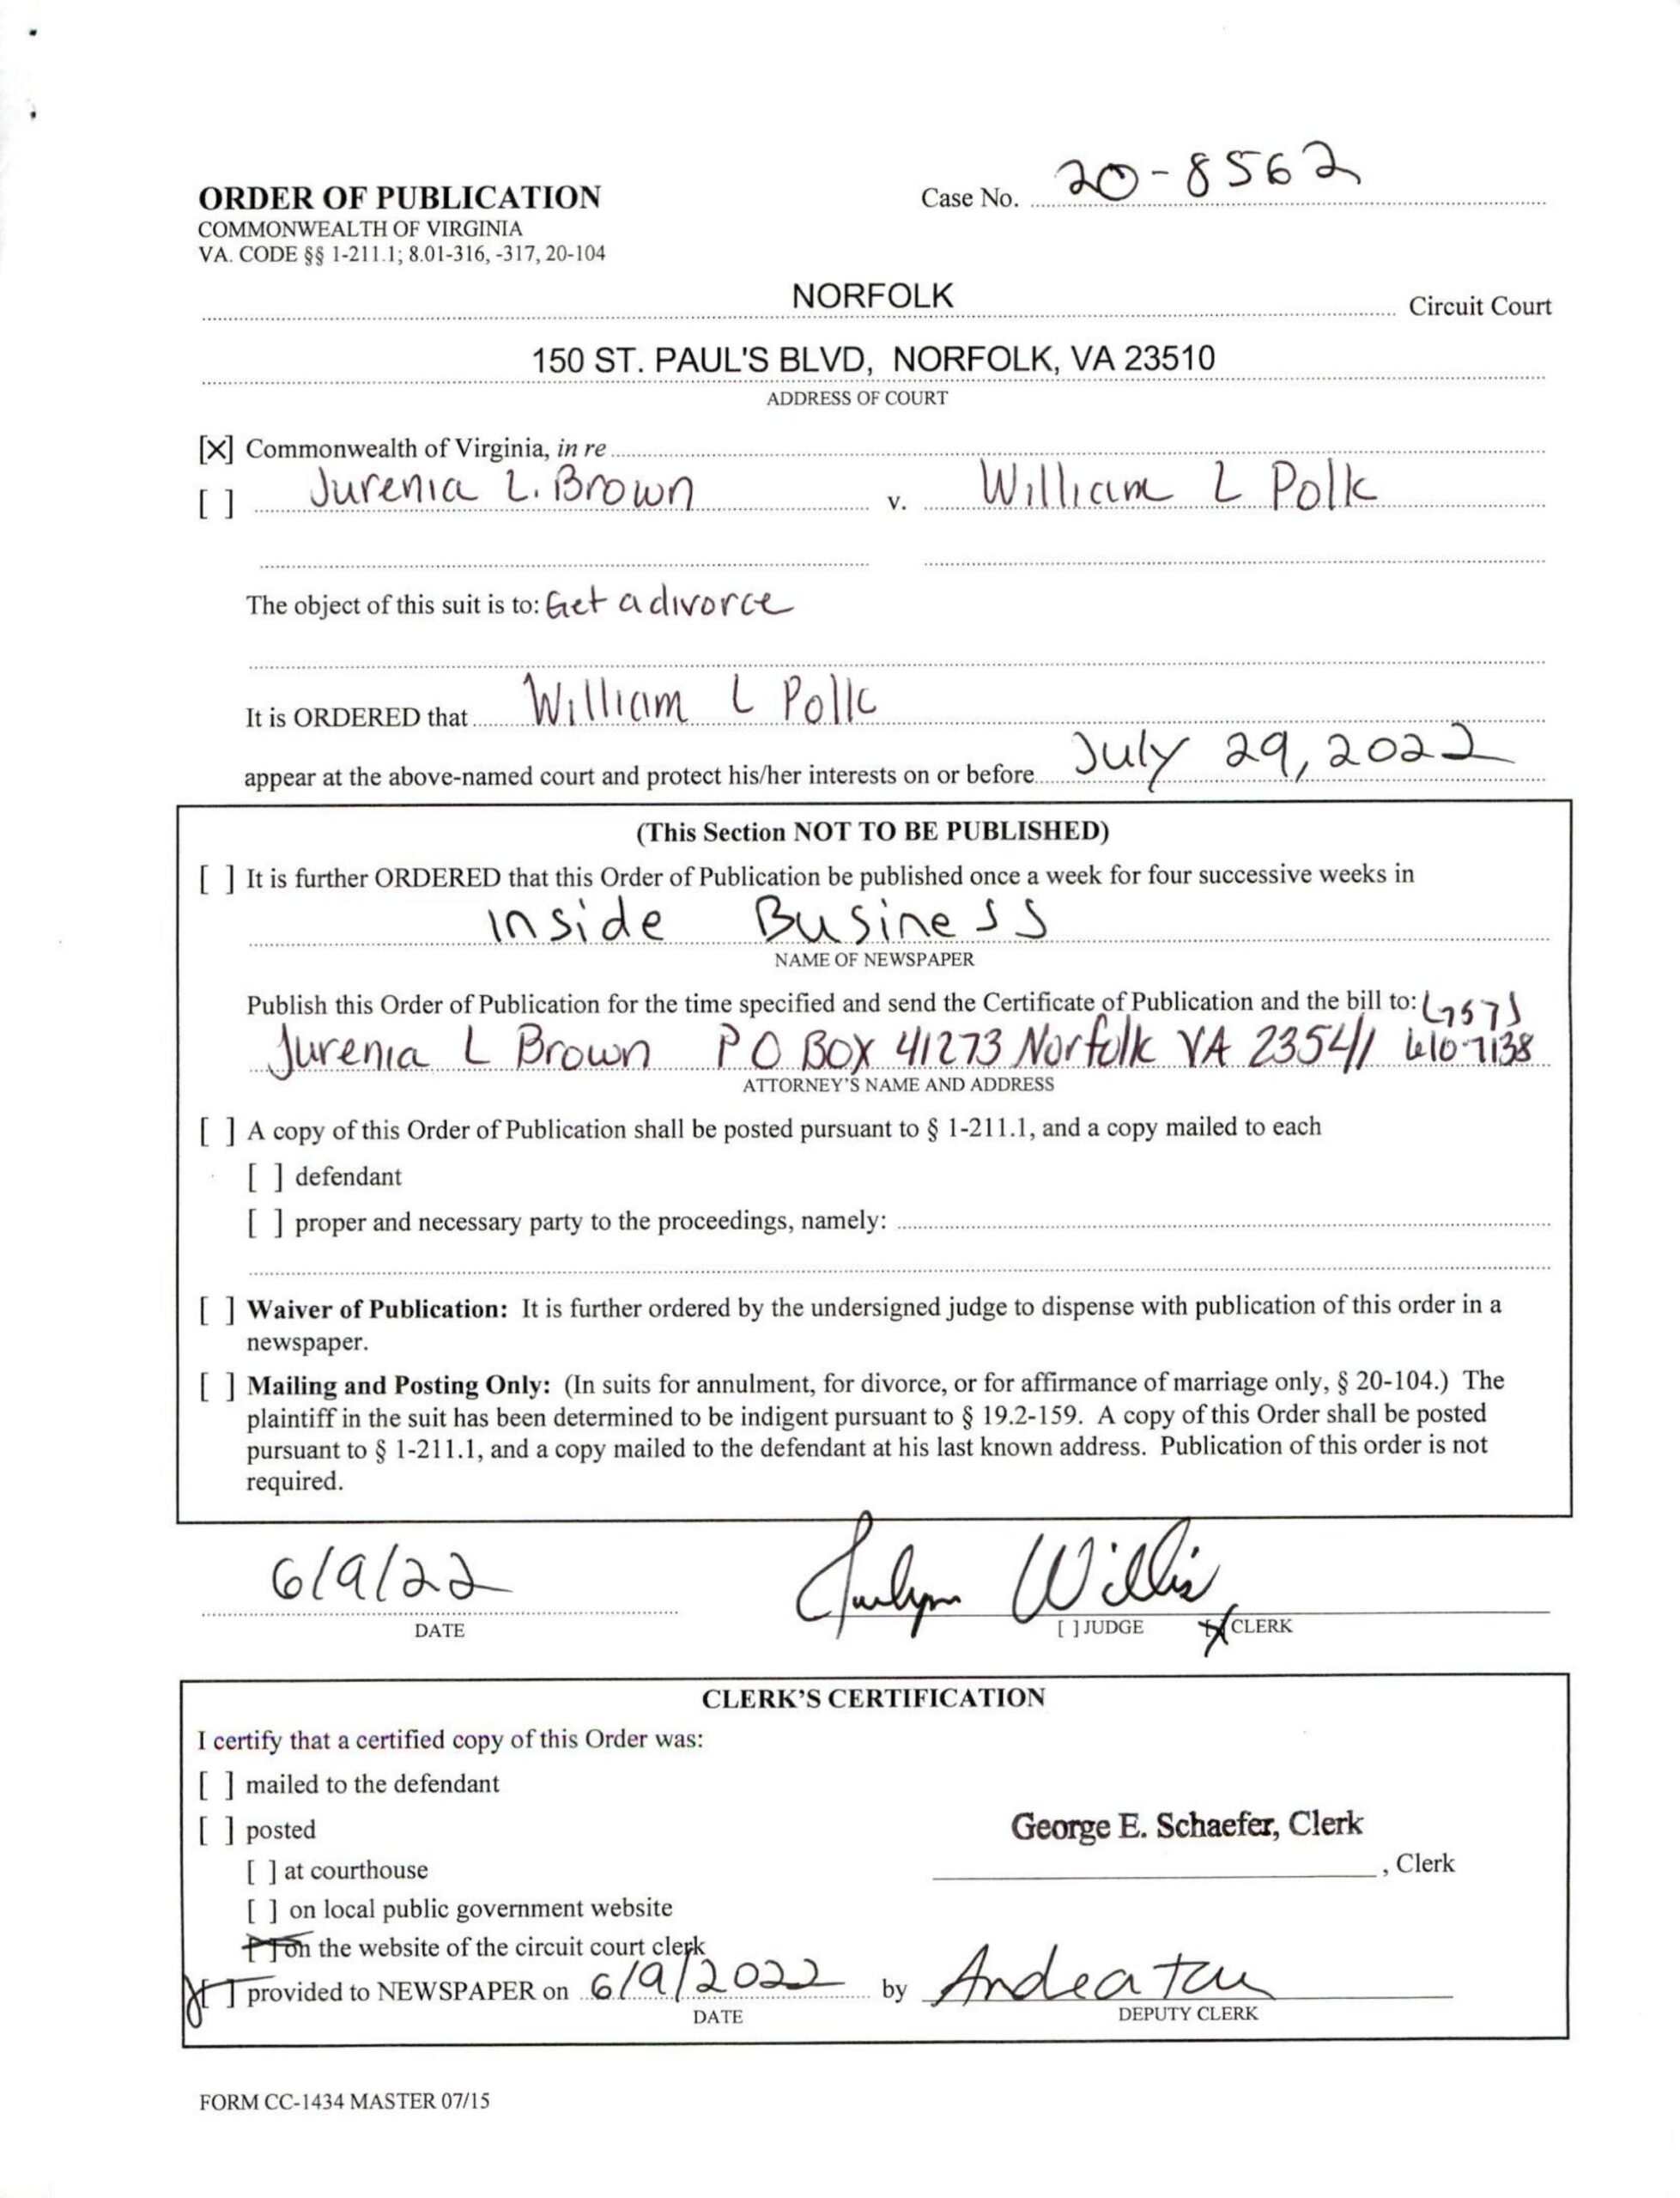 ORDER OF PUBLICATION
Case No. 20-8562
COMMONWEALTH OF VIRGINIA
VA. CODE §§ 1-211.1; 8.01-316, -317, 20-104
NORFOLK Circuit Court
150 ST. PAUL'S BLVD, NORFOLK, VA 23510
ADDRESS OF COURT
[X] Commonwealth of Virginia, in re
[ ] Jurenia L. Brown v. William L Polk
The object of this suit is to: Get a divorce
It is ORDERED that William L Polk
appear at the above-named court and protect his/her interests on or before July 29, 2022
(This Section NOT TO BE PUBLISHED)
[ ] It is further ORDERED that this Order of Publication be published once a week for four successive weeks in
Inside Business
NAME OF NEWSPAPER
Publish this Order of Publication for the time specified and send the Certificate of Publication and the bill to: (757)
Jurenia L Brown PO BOX 41273 Norfolk VA 23541 610-7138
ATTORNEY'S NAME AND ADDRESS
[ ] A copy of this Order of Publication shall be posted pursuant to § 1-211.1, and a copy mailed to each
[ ] defendant
[ ] proper and necessary party to the proceedings, namely:
[ ] Waiver of Publication: It is further ordered by the undersigned judge to dispense with publication of this order in a
newspaper.
[ ] Mailing and Posting Only: (In suits for annulment, for divorce, or for affirmance of marriage only, § 20-104.) The
plaintiff in the suit has been determined to be indigent pursuant to § 19.2-159. A copy of this Order shall be posted
pursuant to § 1-211.1, and a copy mailed to the defendant at his last known address. Publication of this order is not
required.
6/9/22 Willis
DATE [ ] JUDGE [X] CLERK
CLERK'S CERTIFICATION
I certify that a certified copy of this Order was:
[ ] mailed to the defendant
[ ] posted
George E. Schaefer, Clerk
[ ] at courthouse
, Clerk
[ ] on local public government website
[ ] on the website of the circuit court clerk
[ ] provided to NEWSPAPER on 6/9/2022 by
DATE DEPUTY CLERK
FORM CC-1434 MASTER 07/15